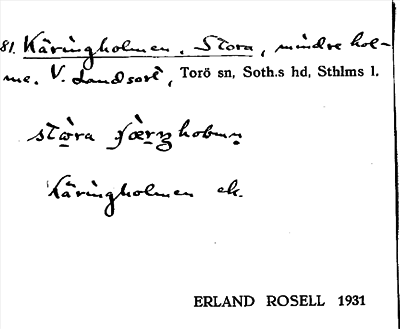 81. Käringholmen, Stora, mindre hol-
me. V. Landsort, Torö sn, Soth.s hd, Sthlms l.
Käringholmen ek.
ERLAND ROSELL 1931